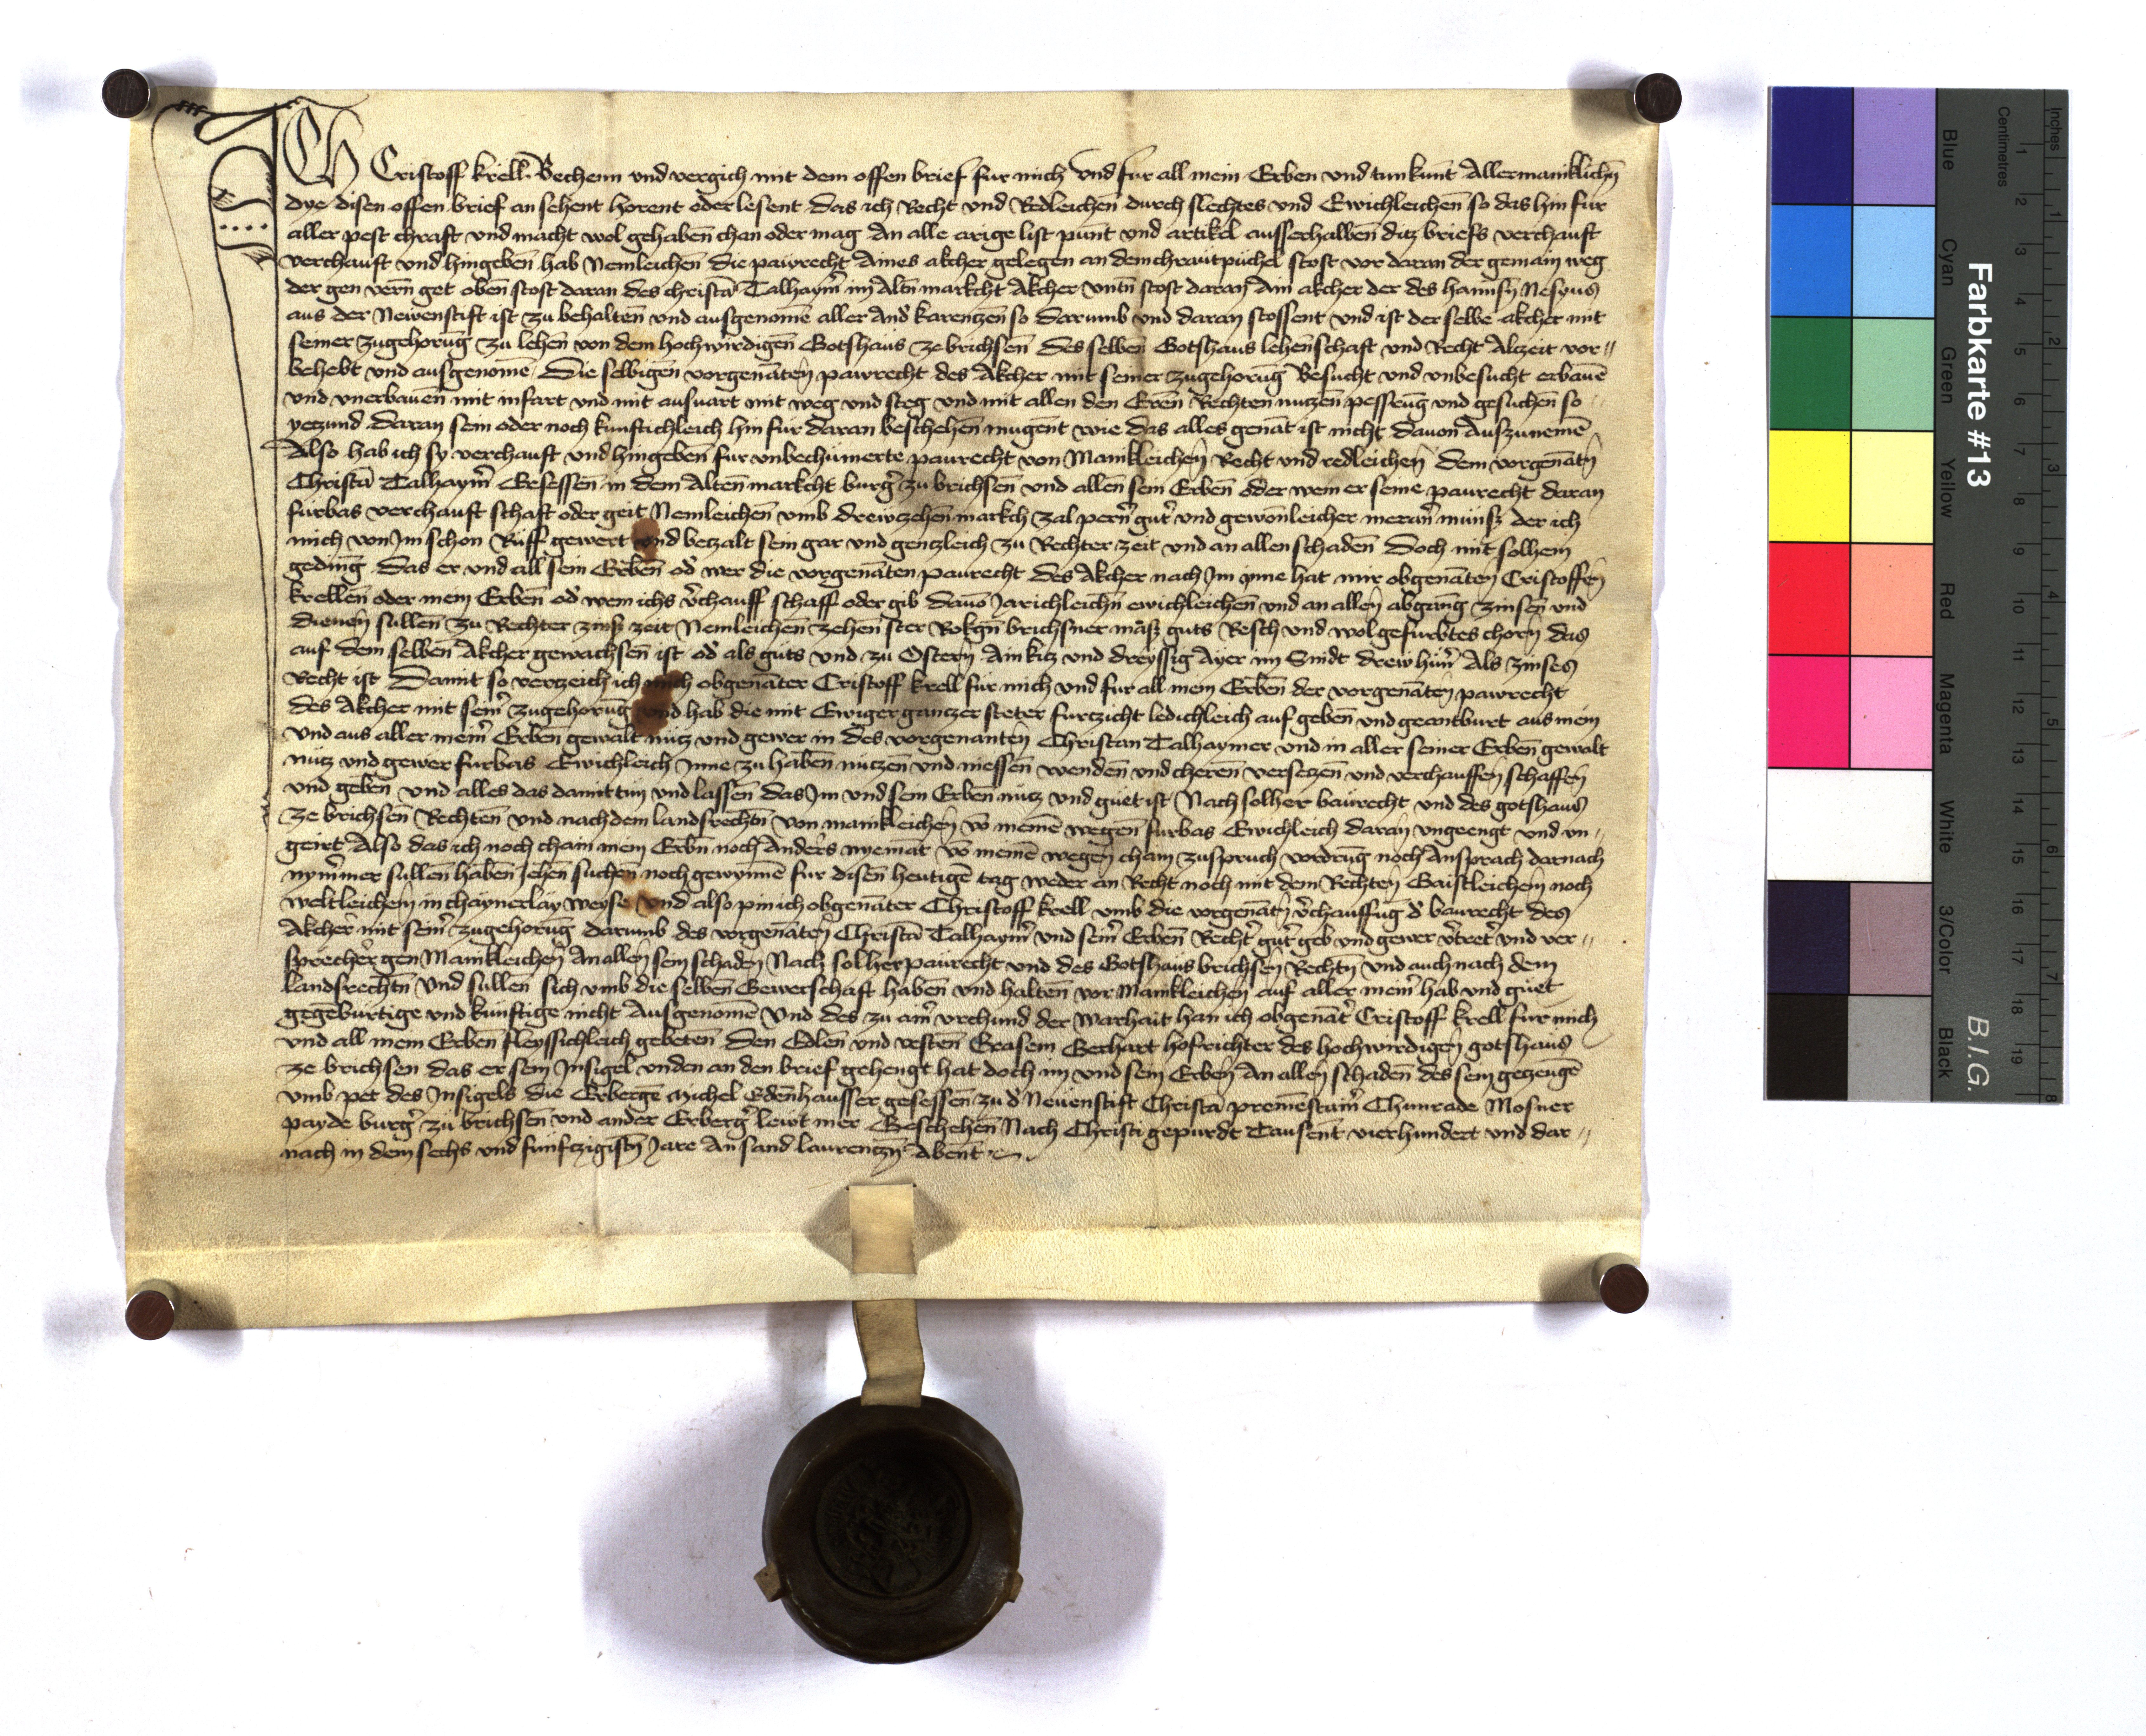 ICH Cristoff krell Bechenn vnd vergich mit dem offen brief fur mich vnd fur all mein Erben vnd tun kunt Allermaniklichn̄
dye disen offen brief an sehent horent oder lesent das ich Recht vnd Redleichen̄ durch slechtes vnd Ewichleichen̄ so das hin fur
aller pest chraft vnd macht wol gehaben̄ chan oder mag An alle arige list punt vnd artikel ausserhalben̄ ditz briefs verchauft
verchauft vnd hingeben̄ hab Nemleichen̄ die pawrecht Aines akcher gelegen an dem chrautpuchel stost vor daran der gemain weg
der gen vern̄ get oben̄ stost daran des christā Talhaym̄ im Altn̄ markcht Akcher vntn̄ stost daran Ain akcher der des hannsn̄ Nesyus
aus der Newenstift ist zu behalten̄ vnd ausgenomē aller And̾ karentzen̄ so darumb vnd daran stossent vnd ist der selbe akcher mit
seiner zugehorūg zu lehen̄ von dem hochwirdigen̄ Gotshaus ze brichsen̄ des selben̄ Gotshaus lehenschaft vnd Recht Altzeit vor〃
behebt vnd ausgenomē Die selbigen̄ vorgenāten̄ pawrecht des Akcher mit seiner zugehorūg Besucht vnd vnbesucht erbauē
vnd vnerbauen̄ mit infart vnd mit ausuart mit weg vnd steg vnd mit allen den Eren̄ Rechten nutzen̄ pesserūg vnd gesuchen̄ so
yetzund daran sein oder noch kunftichleich hin fur daran beschehen̄ mugent wie das alles genāt ist nicht dauon Auszunemē
Also hab ich sy verchauft vnd hingeben̄ fur vnbechumerte paurecht von Manikleichen̄ Recht vnd redleichen̄ dem vorgenātn̄
Christā Talhaym̄ Gesessen̄ in dem Alten̄ markcht burg̾ zu brichsen̄ vnd allen̄ sein Erben̄ oder wem er seine paurecht daran
furbas verchauft schaft oder geit Nemleichen̄ vmb drewzehen̄ markch zal pern̄ gut̾ vnd gewonleicher meran̄ munss der ich
mich von Im schon Ruff gewert vnd betzalt sein gar vnd gentzleich zu Rechter zeit vnd an allen schaden̄ Doch mit solhem
geding Das er vnd all sein Erben̄ od̾ wer die vorgenāten paurecht des Akcher nach Im inne hat mir obgenāten̄ Cristoffen̄
krellen̄ oder mein Erben̄ od̾ wem ichs v̾chauff schaff oder gib dauō Jarichleichn̄ ewichleichen̄ vnd an allen̄ abgang zinsen̄ vnd
dienen̄ sullen̄ zu Rechter zinss zeit Nemleichen̄ zehen̄ ster Rokgn̄ brichsner mass guts Resch vnd wolgefurbtes choren̄ das
auf dem selben̄ Akcher gewachsen̄ ist od̾ als guts vnd zu Ostern̄ Ain kitz vnd dreyssig Ayer im Snidt drew hun̄ Als zinses
Recht ist Damit so vertzeich ich mich obgenāter Cristoff krell fur mich vnd fur all mein Erben̄ der vorgenāten̄ pawrecht
des Akcher mit sein̄ zugehorūg vnd hab die mit Ewiger gantzer steter furtzicht ledichleich auf geben̄ vnd geantburt aus mein
vnd aus aller mein̄ Erben gewalt nutz vnd gewer in des vorgenanten̄ Christan Talhaymer vnd in aller seiner Erben̄ gewalt
nutz vnd gewer furbas Ewichleich Inne zu haben̄ nutzen vnd niessen̄ wenden̄ vnd cheren̄ versetzen̄ vnd verchauffen̄ schaffen̄
vnd geben̄ vnd alles das damit tun̄ vnd lassen̄ das Im vnd sein Erben̄ nutz vnd guet ist Nach solher baurecht vnd des gotshaus
ze brichsen̄ Rechten̄ vnd nach dem landsrechtn̄ von manikleichen̄ vō meinē wegen̄ furbas Ewichleich daran̄ vngeengt vnd vn〃
geirt Also das ich noch chain mein Erbn̄ noch Anders nyemāt vō meinē wegen̄ chain zuspruch vordrūg noch Ansprach darnach
nym̄mer sullen̄ haben̄ jehen̄ suchen̄ noch gewynnē fur disen̄ heutigē tag weder an Recht noch mit dem Rechten̄ Gaistleichem̄ noch
weltleichem̄ in chaynerlay weyse vnd also pin ich obgenāter Christoff krell vmb die vorgenātn̄ v̾chauffūg d̾ baurecht des
Akcher mit sein̄ zugehorūg darumb des vorgenāten̄ Christā Talhaym̄ vnd sein̄ Erben̄ Recht̾ gut̾ geb vnd gewer v̾tret̾ vnd ver〃
sprecher gen Manikleichen̄ An allen̄ sein schaden̄ Nach solher paurecht vnd des Gotshaus brichsen̄ Rechtn̄ vnd auch nach dem
landsrechtn̄ Vnd sullen̄ sich vmb die selben̄ Gewerschaft haben̄ vnd halten̄ vor Manikleichen̄ auf aller mein̄ hab vnd guet
gegēburtige vnd kunftige nicht Ausgenomē Vnd des zu ain̄ vrchund der Warhait han ich obgenāt̾ Cristoff krell fur mich
vnd all mein Erben̄ fleyssichleich gebeten̄ Den Edlen̄ vnd vesten̄ Erasem Gerhart hofrichter des hochwirdigen̄ gotshaus
ze brichsen das er sein Insigel vnden an den brief gehengt hat doch im vnd sein Erben̄ An allen̄ schaden̄ des sein getzeugē
vmb pet des Insigels die Erbergē Michel Edenhausser gesessen̄ zu d̾ Neuenstift Christā premēstain̄ Chunrade Mosner
payde burg̾ zu brichsen̄ vnd ander Erberg̾ lewt mer Geschehen̄ Nach Christi gepurdt Tausent vierhundert vnd dar〃
nach in dem sechs vnd funftzigistn̄ Jare An sand laurentzn̄ Abent
Farbkarte #13
B.I.G.
Inches
Centimetres
Blue
Cyan
Green
Yellow
Red
Magenta
White
3/Color
Black
1 2 3 4 5 6 7 8
1 2 3 4 5 6 7 8 9 10 11 12 13 14 15 16 17 18 19